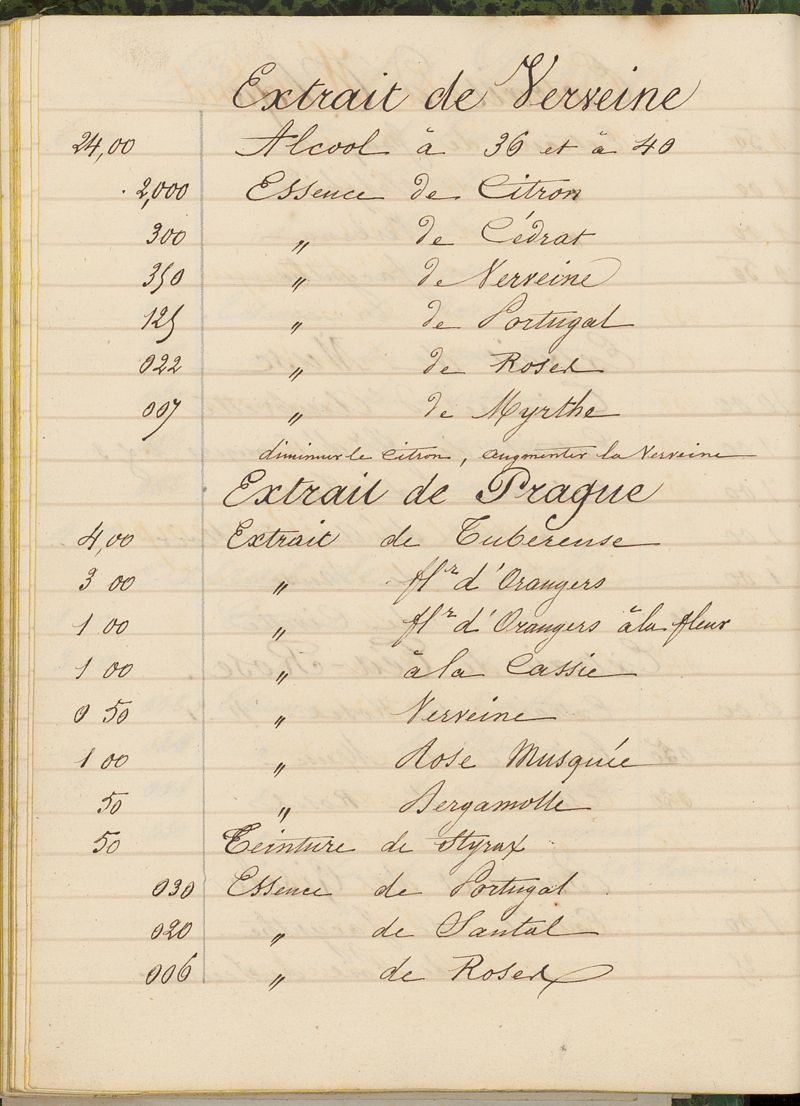 Extrait de Verveine
24,00 Alcool à 36 et à 40
2,000 Essence de Citron
300 " de Cédrat
350 " de Verveine
125 " de Portugal
022 " de Roses
007 " de Myrthe
diminuer le citron, augmenter la Verveine
Extrait de Prague
4,00 Extrait de Tubéreuse
3 00 " flrs d'Orangers
1 00 " flrs d'Orangers à la fleur
1 00 " à la Cassie
0 50 " Verveine
1 00 " Rose Musquée
50 " Bergamotte
50 Teinture de Styrax
030 Essence de Portugal
020 " de Santal
006 " de Roses